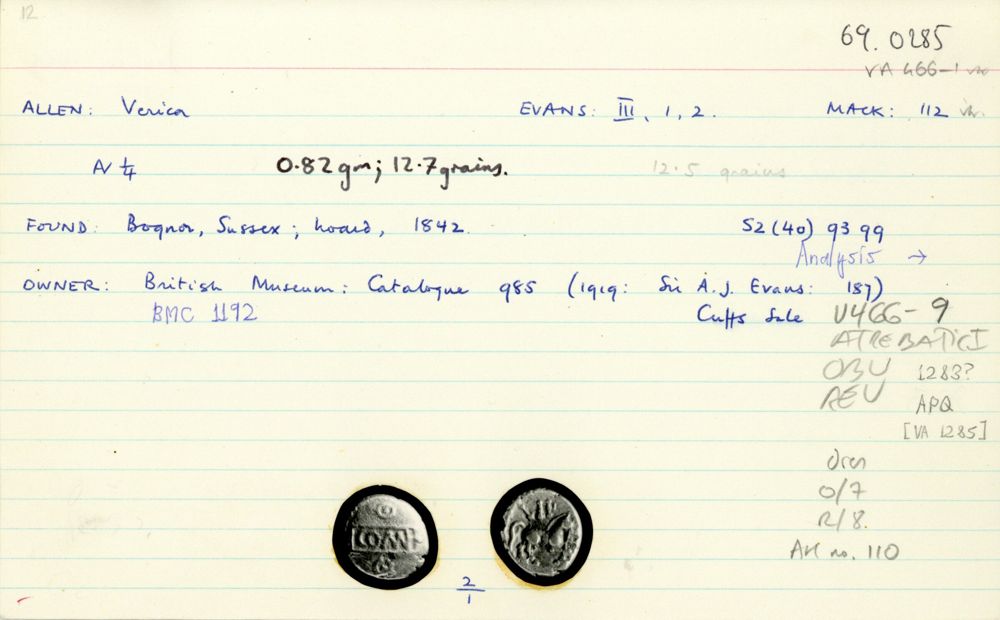 12
69.0285
VA 466-1
ALLEN: Verica EVANS: III, 1, 2. MACK: 112 
AV 1/4 0.82 gm; 12.7 grains. 12.5 grains
FOUND: Bognor, Sussex; hoard, 1842. SZ (40) 93 99
Analysis →
OWNER: British Museum: Catalogue 985 (1919: Sir A.J. Evans: 187)
BMC 1192 Cuffs Sale V466-9
ATREBATICI
OBV 1283?
REV APQ
[VA 1285]
Dies
O/7
R/8.
AH no. 110
COM·F
2/1